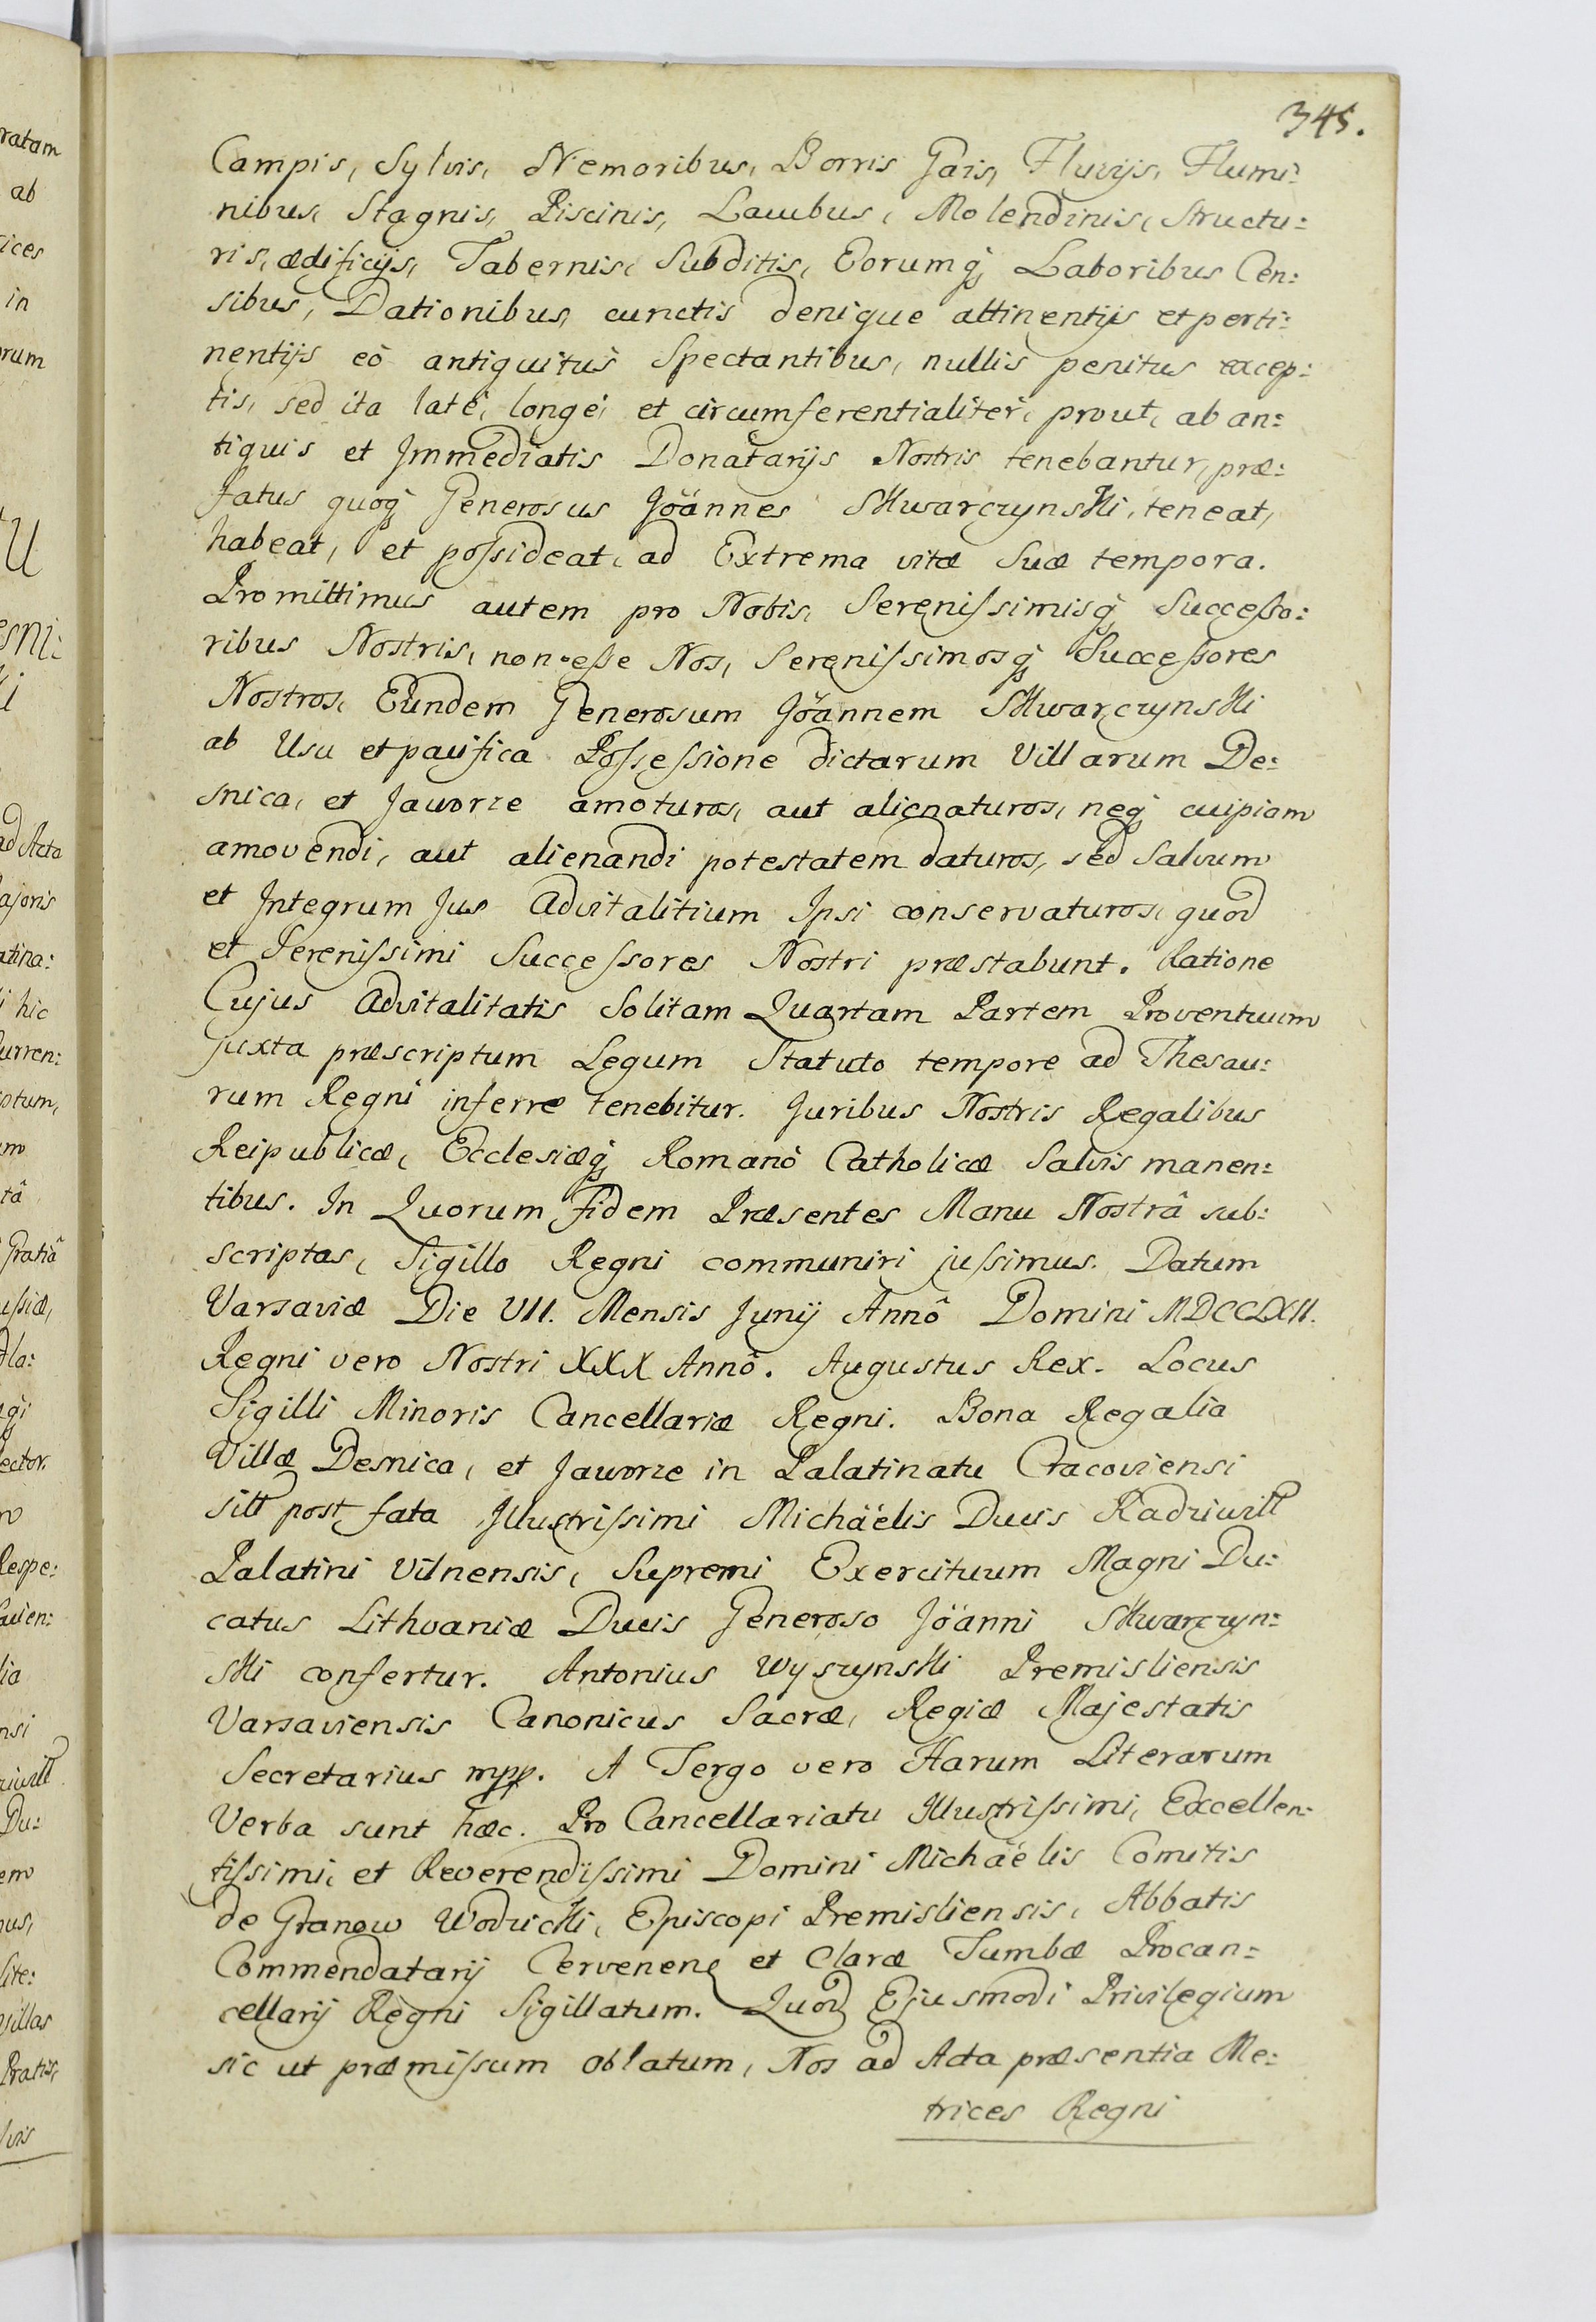 345.
Campis, Sylvis, Nemoribus, Borris Gais, Fluvijs, Flumi:
nibus, Stagnis, Piscinis, Lacubus, Molendinis, Structu:
ris, ædificijs, Tabernis, Subditis, Eorumq; Laboribus Cen:
sibus, Dationibus, cunctis denique attinentijs et perti:
nentijs eò antiquitùs Spectantibus, nullis penitus excep:
tis, sed ita latè, longè, et circumferentialiter, prout, ab an:
tiquis et Immediatis Donatarijs Nostris tenebantur, præ:
fatus quoq; Generosus Jöannes Skwarczynski, teneat,
habeat, et possideat, ad Extrema vitæ Suæ tempora.
Promittimus autem pro Nobis, Serenissimisq; Successo:
ribus Nostris, non esse Nos, Serenissimosq; Successores
Nostros, Eundem Generosum Jöannem Skwarczynski
ab Usu et pacifica Possessione dictarum Villarum De:
snica, et Jaworze amoturos, aut alienaturos, neq; cuipiam
amovendi, aut alienandi potestatem daturos, sed Salvum
et Integrum Jus Advitalitium Ipsi conservaturos, quod
et Serenissimi Successores Nostri præstabunt. Ratione
Cujus Advitalitatis Solitam Quartam Partem Proventuum
juxta præscriptum Legum Statuto tempore ad Thesau:
rum Regni inferre tenebitur. Juribus Nostris Regalibus
Reipublicæ, Ecclesiæq; Romanò Catholicæ Salvis manen:
tibus. In Quorum fidem Præsentes Manu Nostrâ sub:
scriptas, Sigillo Regni communiri jussimus. Datum
Varsaviæ Die VII. Mensis Junij Annô Domini MDCCLXII.
Regni vero Nostri XXX Annô. Augustus Rex. Locus
Sigilli Minoris Cancellariæ Regni. Bona Regalia
Villæ Desnica, et Jaworze in Palatinatu Cracoviensi
sitt post fata Illustrissimi Michäelis Ducis Radziwill
Palatini Vilnensis, Supremi Exercituum Magni Du:
catus Lithvaniæ Ducis Generoso Jöanni Skwarczyn:
ski confertur. Antonius Wyszynski Premisliensis
Varsaviensis Canonicus Sacræ, Regiæ Majestatis
Secretarius mpp. A Tergo vero Harum Literarum
Verba sunt hæc. Pro Cancellariatu Illustrissimi, Excellen:
tissimi, et Reverendissimi Domini Michäelis Comitis
de Granow Wodzicki, Episcopi Premisliensis, Abbatis
Commendatarij Cervenen et Claræ Tumbæ Procan:
cellarij Regni Sigillatum. Quod Ejusmodi Privilegium
sic ut præmissum oblatum, Nos ad Acta præsentia Me:
trices Regni